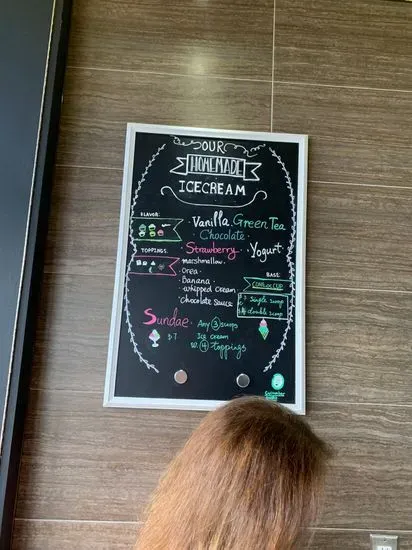 OUR
HOMEMADE
ICECREAM
FLAVOR:
· Vanilla Green Tea
Chocolate ·
· Strawberry · Yogurt
TOPPINGS:
· marshmallow
· Orea ·
· Banana
· whipped cream ·
· Chocolate Sauce
BASE
CONE or CUP
single scoop
double scoop
Sundae
$7
Any 3 scoops
Ice cream
w. 4 toppings